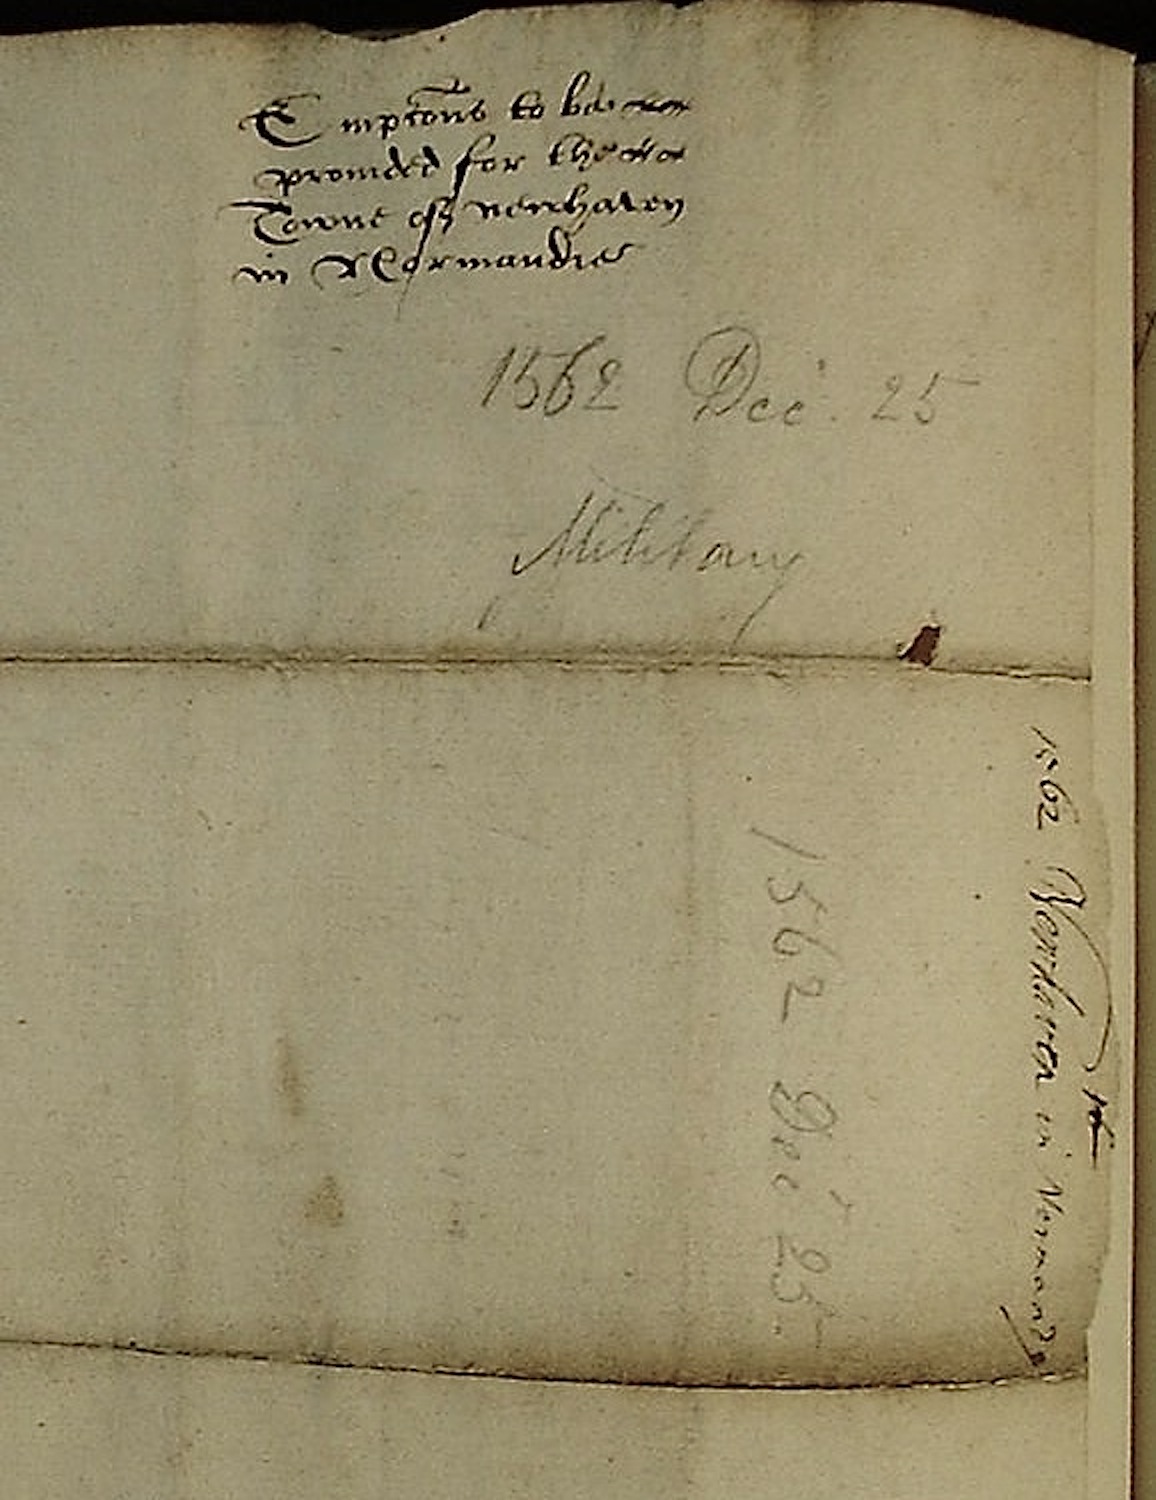 Empcons to be
prouided for the
Towne of newhaven
in Normandie
1562 Dec. 25
Military
1562 Newhaven in Normandy
1562 Dec 25